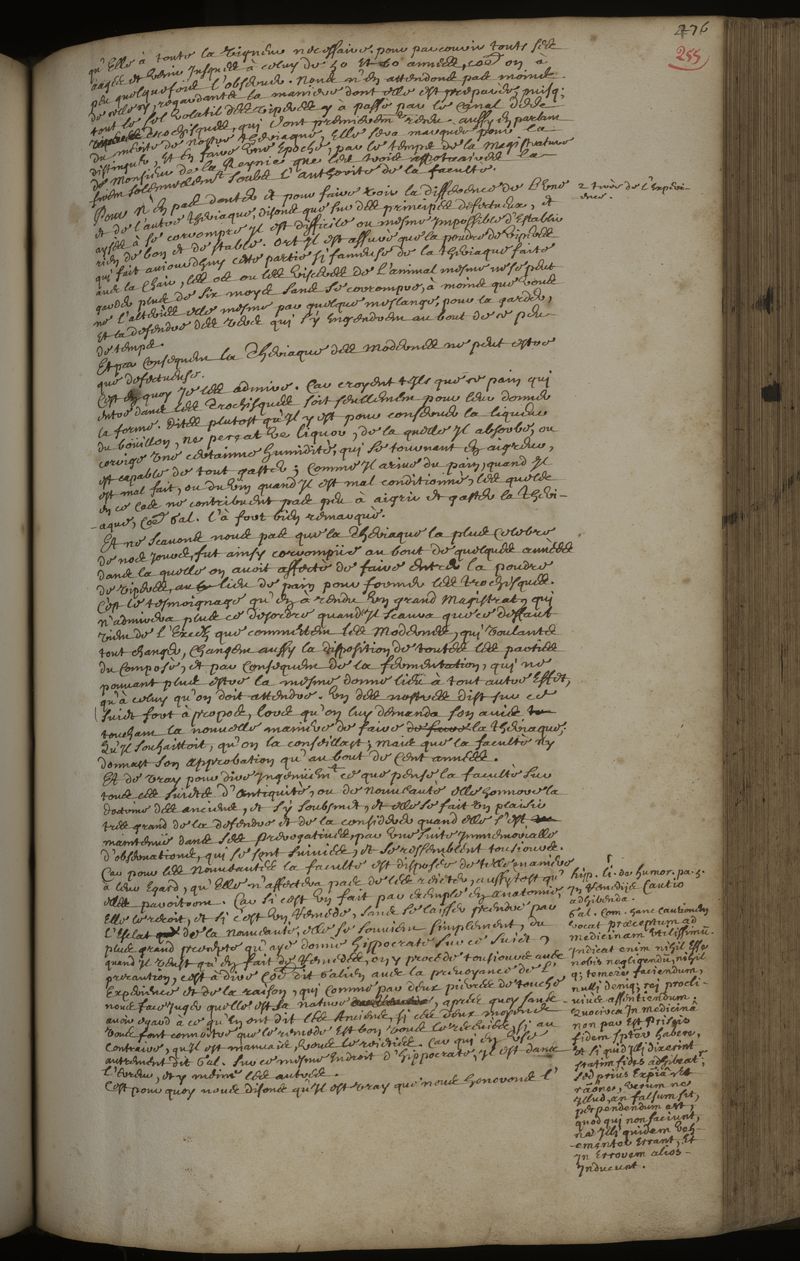 276
255
qu'Elle à toute la vigueur necessaire, pour parcourir touts ses
aages et venir jusques à celuy de 50 et 60 années, coe on a
peu quelquefois l'observer. Nous n'en attendons pas moins
de celle cy, regardante la maniere dont elle est preparée, puisq;
tout le sel volatil des viperes y à passé par le canal desd.
Trochisques, qui l'ont premierem rendu. aussy en parlant
du merite de nostre Theriaque, Elle sera marquée pour la
distinguer, Et En faire une Epoche, par le temps de la Magistrature
de Monsieur de la Reynie que les trois apotiquaires la
firent solemnellem soubs l'authorité de la faculté.
Pour n'en pas douter et pour faire voir la difference de l'une
et de l'autre Theriaque, disons que sur des principes defectueux, et
aysés à se corrompre Il est difficile ou mesme Impossible d'Establir
rien de bon et de stable. Ort Il est assuré que la poudre de vipere
qui fait aujourdhuy cette partie si fameuse de la Theriaque faite
avec la chair, les os ou les visceres de l'animal mesme ne se peut
garder plus de six moys sans se corrompre, à moins que vous
ne l'alteriés elle mesme par quelque meslange, pour la garder,
Et la defendre des vers qui s'y Engendrent au bout de ce peu
de temps.
Et par consequent la Theriaque des modernes ne peut estre
que defectueuse.
C'est en quoy Je les admire. Car croyent t'ils que ce pain qui
entre dans les Trochisques soit seullement pour leur donner
la forme. Dites plutost qu'Il y est pour conserver la liqueur
du bouillon, ne perçat ce liquor, de la quelle Il absorbe, ou
corrige une certainne humidité, qui se tournant En aigreur,
est capable de tout gaster; Comme Il arive du pain, quand Il
est mal fait, ou du vin quand Il est mal conditionné, les quels
en ce cas ne contribuent pas peu à aigrir et gaster la Theri-
-aque, coe Gal. l'à fort bien remarqué.
Et ne scavons nous pas que la Theriaque la plus Celebre
de nos Jours, fut ainsy corrompüe au bout de quelques années
dans la quelle on avoit affecté de faire entrer la poudre
de viperes, au lieu de pain pour former les Trochisques.
C'est le tesmoignage qu'en à rendu un grand Magistrat, qui
n'admirera plus ce desordre quand Il scaura que ce deffaut
vient de l'Excez que commettent les Modernes, qui voulants
tout changer, changent aussy la disposition de toutes les parties
du composé, et par consequent de la fermentation, qui ne
pouvant plus estre la mesme donne lieu à tout autre Effet,
qu'à celuy qu'on doit attendre. Un des nostres dist sur ce
sujet fort à propos, lors qu'on luy demanda son avis
touchant la nouvelle maniere de faire la Theriaque;
Qu'Il souhaittoit, qu'on la conseillast; mais que la faculté n'y
donnast son approbation qu'au bout de Cent années.
Et de vray pour dire Ingenüem^t ce que pense la faculté sur
tous ces sujets d'antiquité, ou de nouveauté elle honnore la
doctrine des anciens, et s'y soubsmet, et elle se fait un plaisir
tres grand de la defendre et de la considerer quand elle s'est
maintenüe dans ses prerogatives, par une suite Immemorialle
d'observations, qui se sont suivies, et se ressemblent tousjours.
Car pour les Nouveautés la faculté est disposée de telle maniere
à leur Egard, qu'Elle n'affectera pas de les rejeter, aussytost qu'
elles paroitront. Car si c'est un fait par exemple en anatomie,
Elle le reçoit, et si c'est un Remede, sans se laisser prendre par
l'Esclat de la nouveauté, elle se souvient simplement, du
plus grand precepte qu'aye donné Hippocrate sur ce sujet,
quand Il veust qu'en fait de Remedes, on y procede tousjours avec
precaution, c'est à dire coe dit Galien avec la prevoyance de l'
Experience et de la raison, qui comme par deux pierres de touche
nous face juger quelle est sa nature, aprés quoy sans
avoir egard à ce qu'en ont dit les Anciens, si ces deux moyens
vous font connoitre que le remede est bon vous le recevrés, si au
contraire, qu'Il est mauvais, vous le rejettrés. Car qui en use
autrement dit Gal. sur ce mesme endroit d'Hippocrate, Il est dans
l'Erreur, et y méine les autres.
C'est pour quoy nous disons qu'Il est vray que nous honorons l'
2 tirée de l'Experi-
ence.
hip. li. de humor. pa. 3.
In Remedijs Cautio
adhibenda.
Gal. Com. hanc cautionem
vocat præceptum ad
medicinam Utilissimũ.
Indicat enim nihil esse
nobis negligendũ, nihil
q; temere faciendum,
nulli deniq; rei procli-
-vius assentiendum.
Quocirca In medicinâ
non par est Priscis
fidem semper habere,
Et si quid illi dixerint
statim fides adhibeat,
sed prius Experiã Et
rãone, verum ne
illud, an falsum sit,
perpendendum est,
quod qui non faciunt,
nã Illi quidem veh-
-ementer Errant, Et
In Errorem alios
Inducunt.